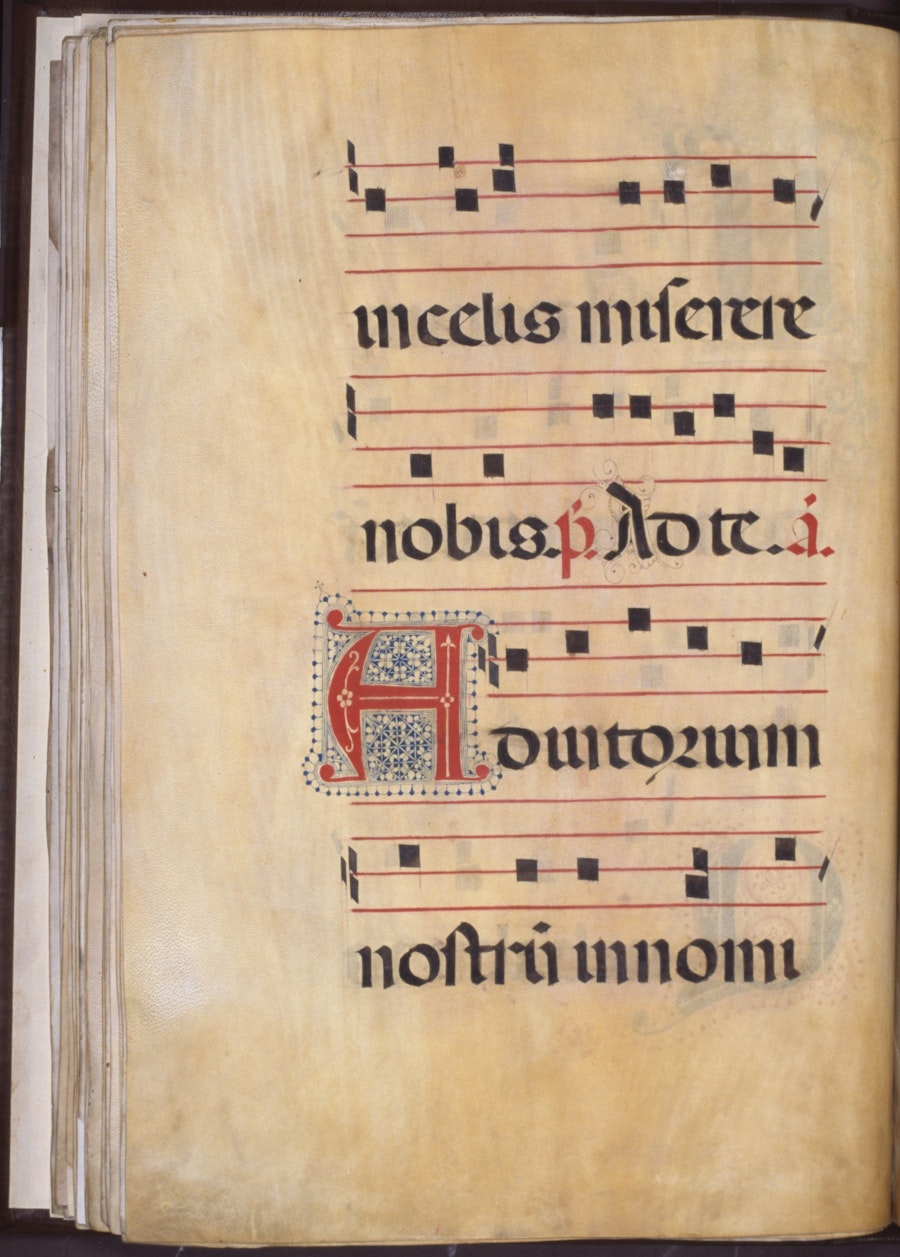 in celis miserere
nobis. p̄. Ad te. ā.
Adiutorium
nostrū in nomi